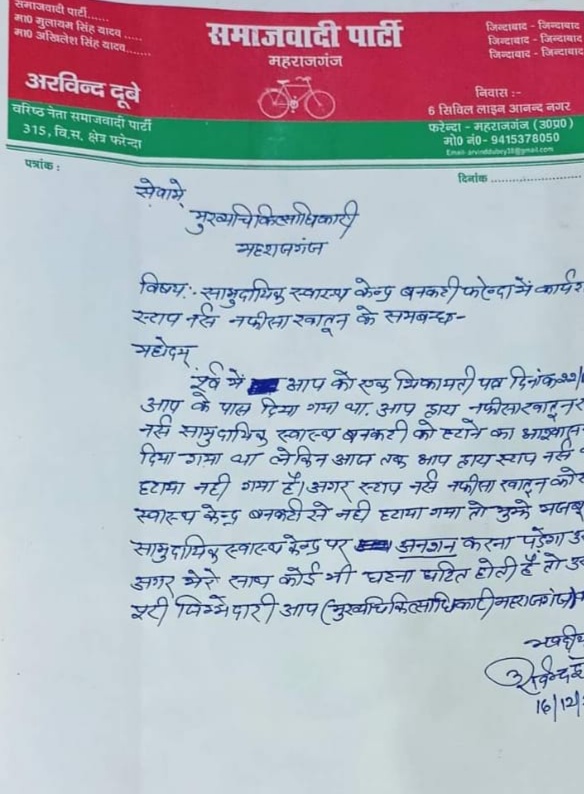 समाजवादी पार्टी......
मा0 मुलायम सिंह यादव .....
मा0 अखिलेश सिंह यादव.......
समाजवादी पार्टी
महराजगंज
जिन्दाबाद - जिन्दाबाद
जिन्दाबाद - जिन्दाबाद
जिन्दाबाद - जिन्दाबाद
अरविन्द दूबे
वरिष्ठ नेता समाजवादी पार्टी
315, वि.स. क्षेत्र फरेन्दा
निवास :-
6 सिविल लाइन आनन्द नगर
फरेन्दा - महराजगंज (उ0प्र0)
मो0 नं0- 9415378050
Email- arvinddubey38@gmail.com
पत्रांक :
दिनांक ........................
सेवामे
मुख्यचिकित्साधिकारी
महराजगंज
विषय:- सामुदायिक स्वास्थ्य केन्द्र बनकटी फरेन्दा में
स्टाप नर्स नफीसा खातून के सम्बन्ध-
महोदय,
पूर्व में आप को एक शिकायती पत्र दिनांक 22/
आप के पास दिया गया था. आप द्वारा नफीसा खातून
नर्स सामुदायिक स्वास्थ्य बनकटी को हटाने का
दिया गया था लेकिन आज तक आप द्वारा स्टाप नर्स
हटाया नही गया है। अगर स्टाप नर्स नफीसा खातून को
स्वास्थ्य केन्द्र बनकटी से नही हटाया गया तो मुझे
सामुदायिक स्वास्थ्य केन्द्र पर अनशन करना पड़ेगा
अगर मेरे साथ कोई भी घटना घटित होती है तो
जिम्मेदारी आप (मुख्यचिकित्साधिकारी महराजगंज)
16/12/